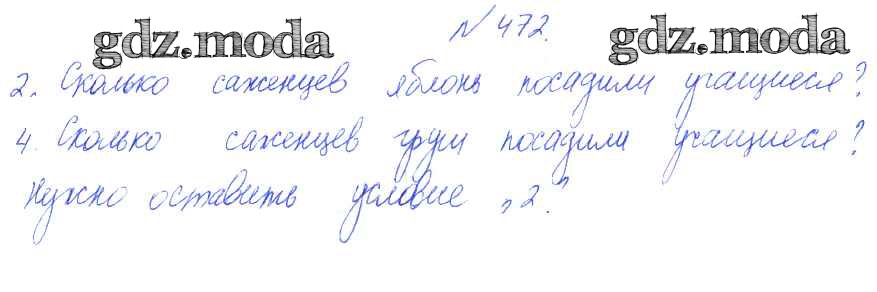 gdz.moda № 472. gdz.moda
2. Сколько саженцев яблонь посадили учащиеся?
4. Сколько саженцев груш посадили учащиеся?
Нужно оставить условие „2."